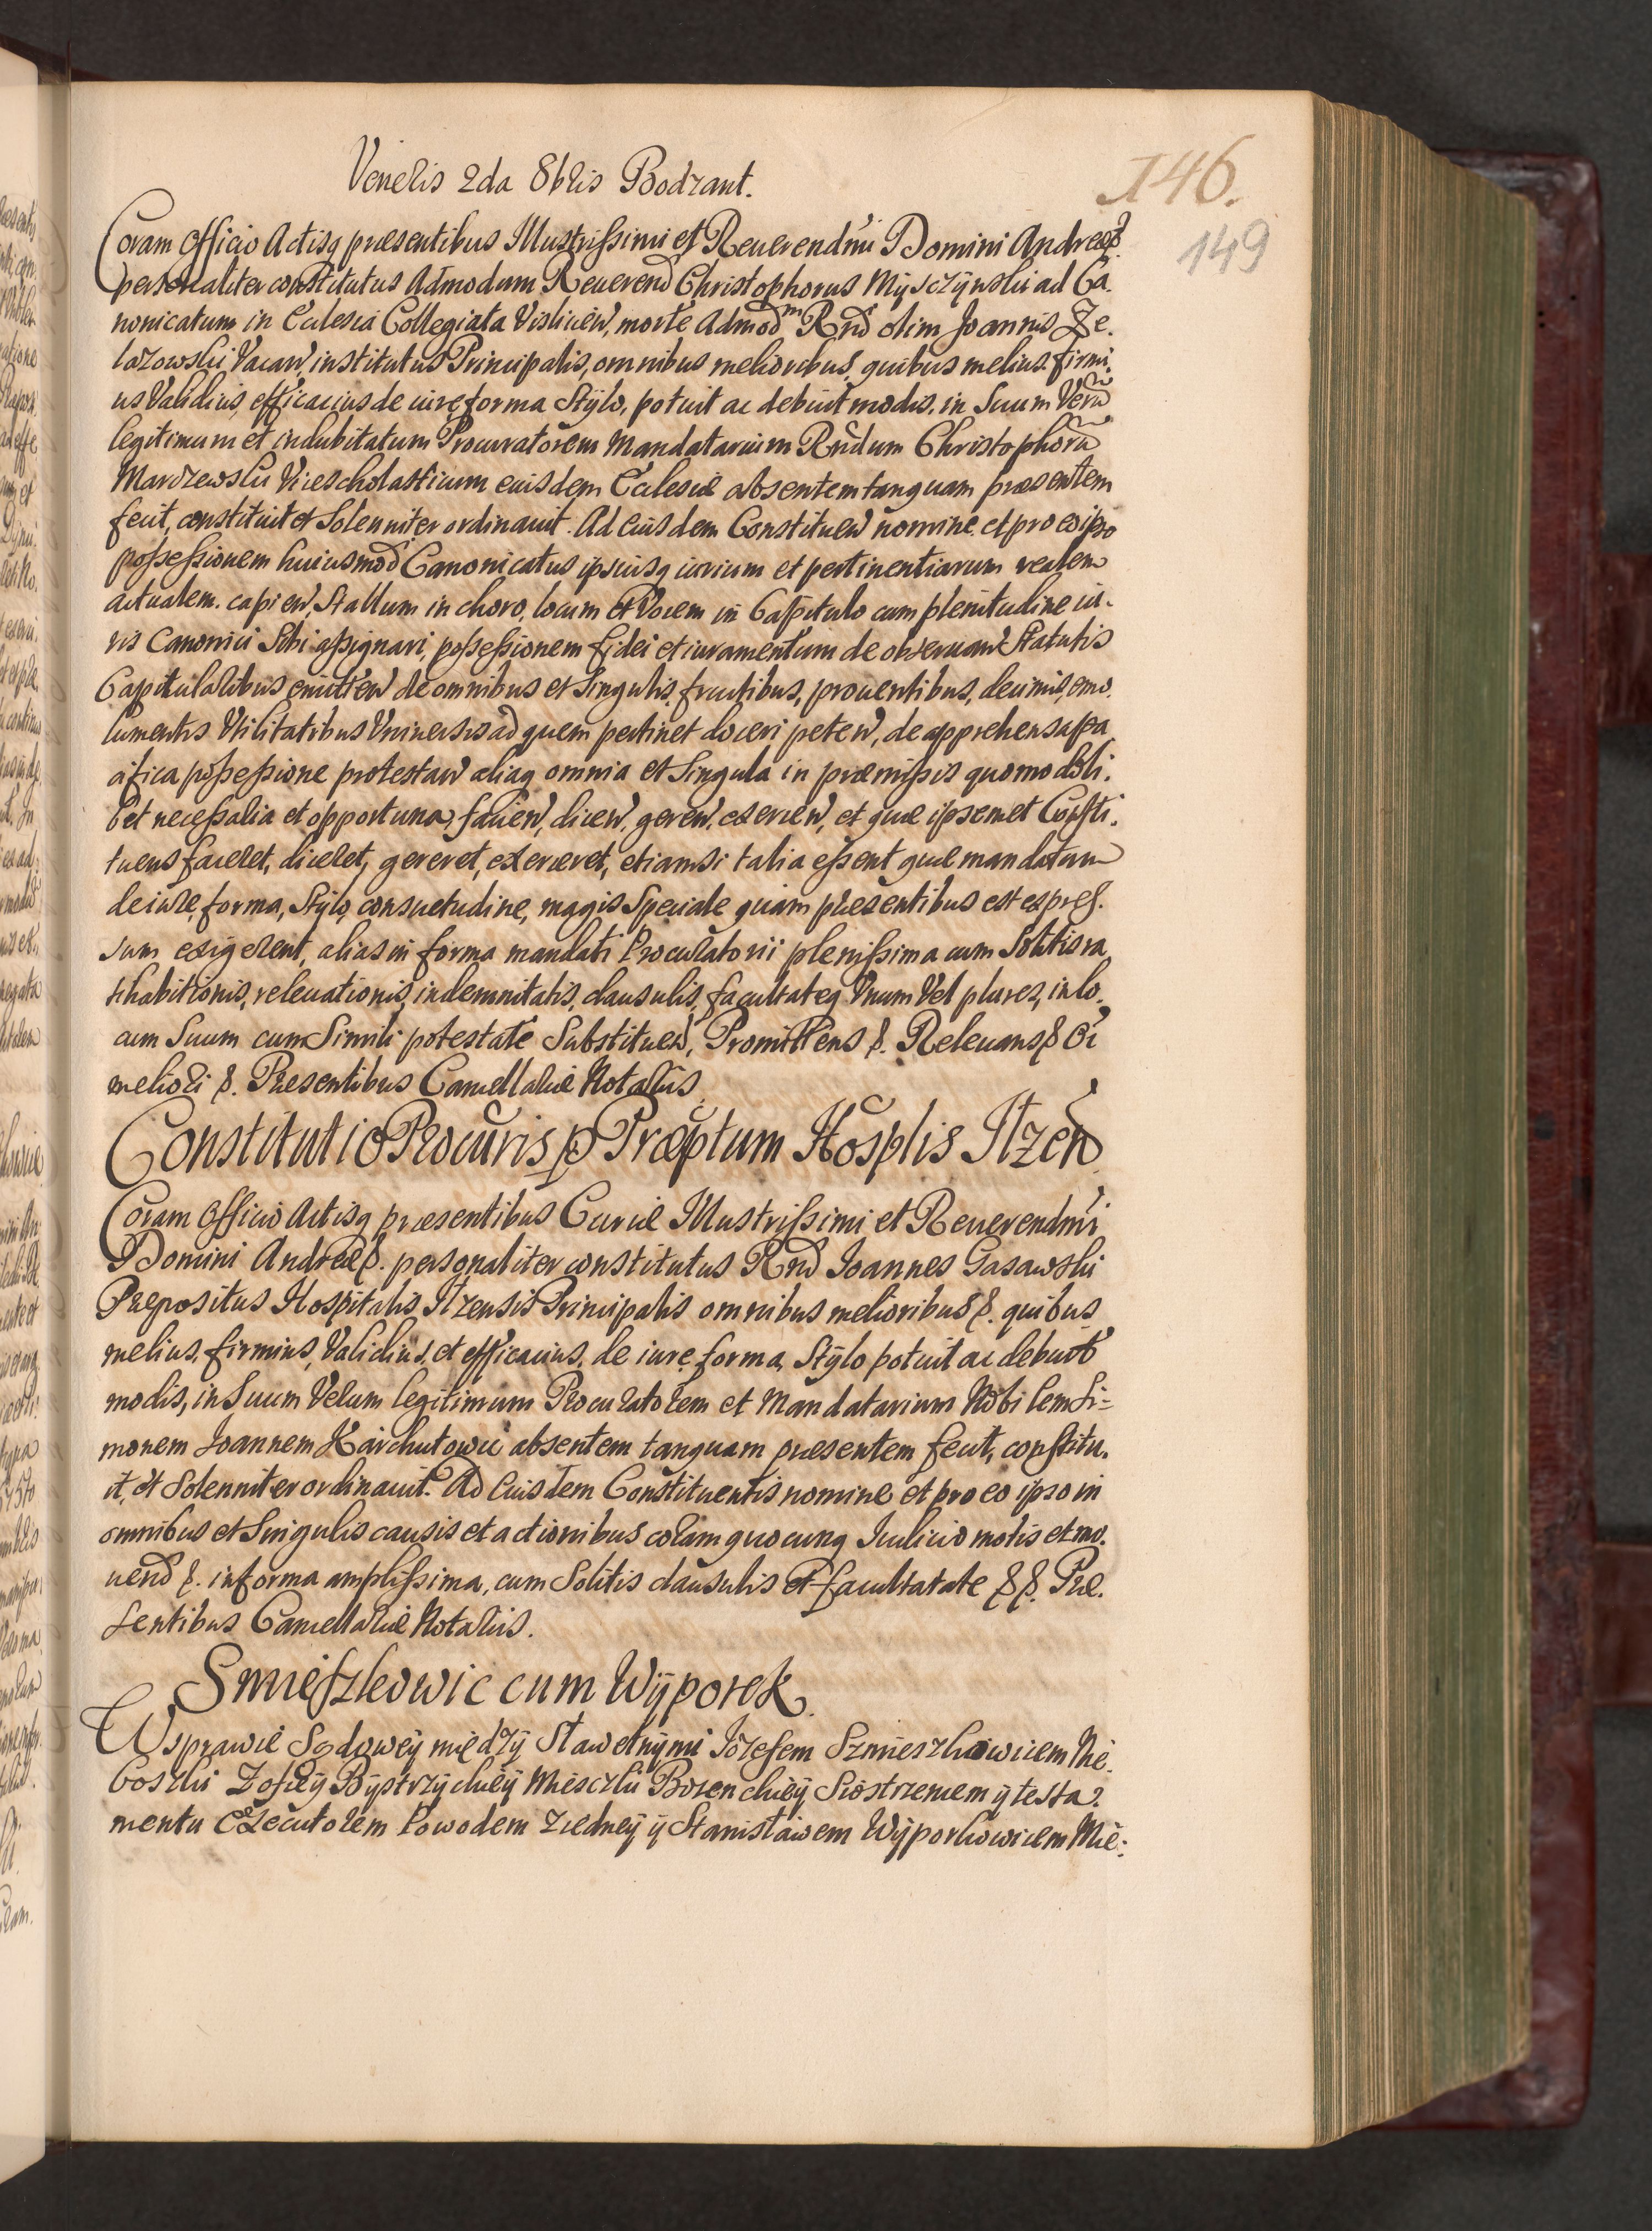 Veneris 2da 8bris Bodzant.
146.
149
Coram Officio Actisq præsentibus Illustrissimi et Reuerendmi Domini Andreæ &.
personaliter constitutus Admodum Reuerend Christophorus Mÿsczÿnski ad Ca.
nonicatum in Ecclesia Collegiata Vislicen, morte Admodm Rnd olim Joannis Ze.
lazowski Vacan, institutus Principalis, omnibus melioribus, quibus melius. firmi.
us Validius, efficacius de iure, forma Stÿlo, potuit ac debuit modis, in Suum Veru
legitimum et indubitatum Procuratorem Mandatarium Rndum Christophoru
Marszewski Vicescholasticum eiusdem Ecclesiæ absentem tanquam præsentem
fecit, constituit et Solenniter ordinauit. Ad Eiusdem Constituen nomine. et pro eo ipso
possessionem huiusmod Canonicatus ipsiusq iurium et pertinentiarum realem
actualem. capien, Stallum in choro, locum et Vocem in Capitulo cum plenitudine iu.
ris Canonici Sibi assignari, possessionem fidei et iuramentum de obseruant Statutis
Capitularibus emitten de omnibus et Singulis, fructibus, prouentibus, decimis, emo.
lumentis Vtilitatibus Vniuersis ad quem pertinet doceri peten, de apprehensa pa
cifica possessione protestan aliaq omnia et Singula in præmissis quomodoli.
bet necessaria et opportuna, facien, dicen, geren, exercen, et quæ ipsemet Consti.
tuens faceret, diceret, gereret, exerceret, etiamsi talia essent quæ mandatum
de iure, forma, Stÿlo, consuetudine, magis Speciale quam præsentibus est expres.
sum exigerent, alias in forma mandati Procuratorii plenissima cum Solitis ra
tihabitionis, releuationis, indemnitatis, clausulis, facultateq Vnum Vel plures, in lo.
cum Suum cum Simili potestate Substituen, Promittens &. Releuans & Oi
meliori &. Præsentibus Cancellariæ Notariis.
Constitutio Procuris p Præptum Hosplis Ilzen
Coram Officio Actisq præsentibus Curiæ Illustrissimi et Reuerendmi
Domini Andreæ &. personaliter constitutus Rnd Joannes Gasawski
Præpositus Hospitalis Ilzensis Principalis omnibus melioribus &. quibus
melius, firmius, Validius, et efficacius, de iure forma, Stÿlo potuit ac debuit
modis, in Suum Verum legitimum Procuratorem et Mandatarium Nobilem Si=
monem Joannem Karchutowic absentem tanquam præsentem fecit, constitu.
it, et Solenniter ordinauit. Ad Eiusdem Constituentis nomine et pro eo ipso in
omnibus et Singulis causis et actionibus coram quocunq Iudicio motis et mo.
uend &. in forma amplissima, cum Solitis clausulis et facultatate & &. Præ.
sentibus Cancellariæ Notariis.
Smieszkowic cum Wÿporek.
W sprawie Sądoweÿ międzÿ Sławetnÿmi Józefem Szmieszkowicem Nie.
boszki Zofieÿ Bÿstrzÿckieÿ Miesczki Bozenckieÿ Siostrzencem ÿ testa.
mentu Exzecutorem Powodem z iedneÿ ÿ Stanisławem Wÿporkowicem Mie: